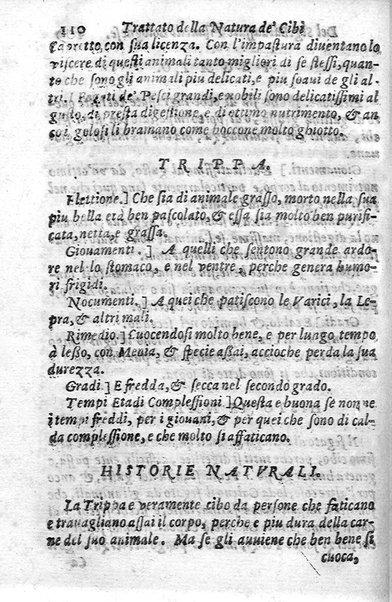 110 Trattato della Natura de' Cibi
Capretto, con sua licenza. Con l'impastura diuentano lo
viscere di questi animali tanto migliori di se stessi, quan-
to che sono gli animali piu delicati, e piu soaui de gli al
tri. I Fegati de' Pesci grandi, e nobili sono delicatissimi al
gusto, di presta digestione, e di ottimo nutrimento, & an-
co i golosi li bramano come boccone molto ghiotto.
TRIPPA.
Elettione.] Che sia di animale grasso, morto nella sua
piu bella età ben pascolato, & essa sia molto ben purifi-
cata, netta, e grassa.
Giouamenti.] A quelli che sentono grande ardo-
re nel lo stomaco, e nel ventre, perche genera humo-
ri frigidi.
Nocumenti.] A quei che patiscono le Varici, la Le-
pra, & altri mali.
Rimedio.] Cuocendosi molto bene, e per lungo tempo
à lesso, con Menta, & specie assai, accioche perda la sua
durezza.
Gradi.] E fredda, & secca nel secondo grado.
Tempi Etadi Complessioni] Questa e buona se non ne
i tempi freddi, per i giouani, & per quei che sono di cal-
da complessione, e che molto si affaticano.
HISTORIE NATVRALI.
La Trippa e veramente cibo da persone che faticano
e trauagliano assai il corpo, perche e piu dura della car-
ne del suo animale. Ma se gli auuiene che ben bene si
cuoca,